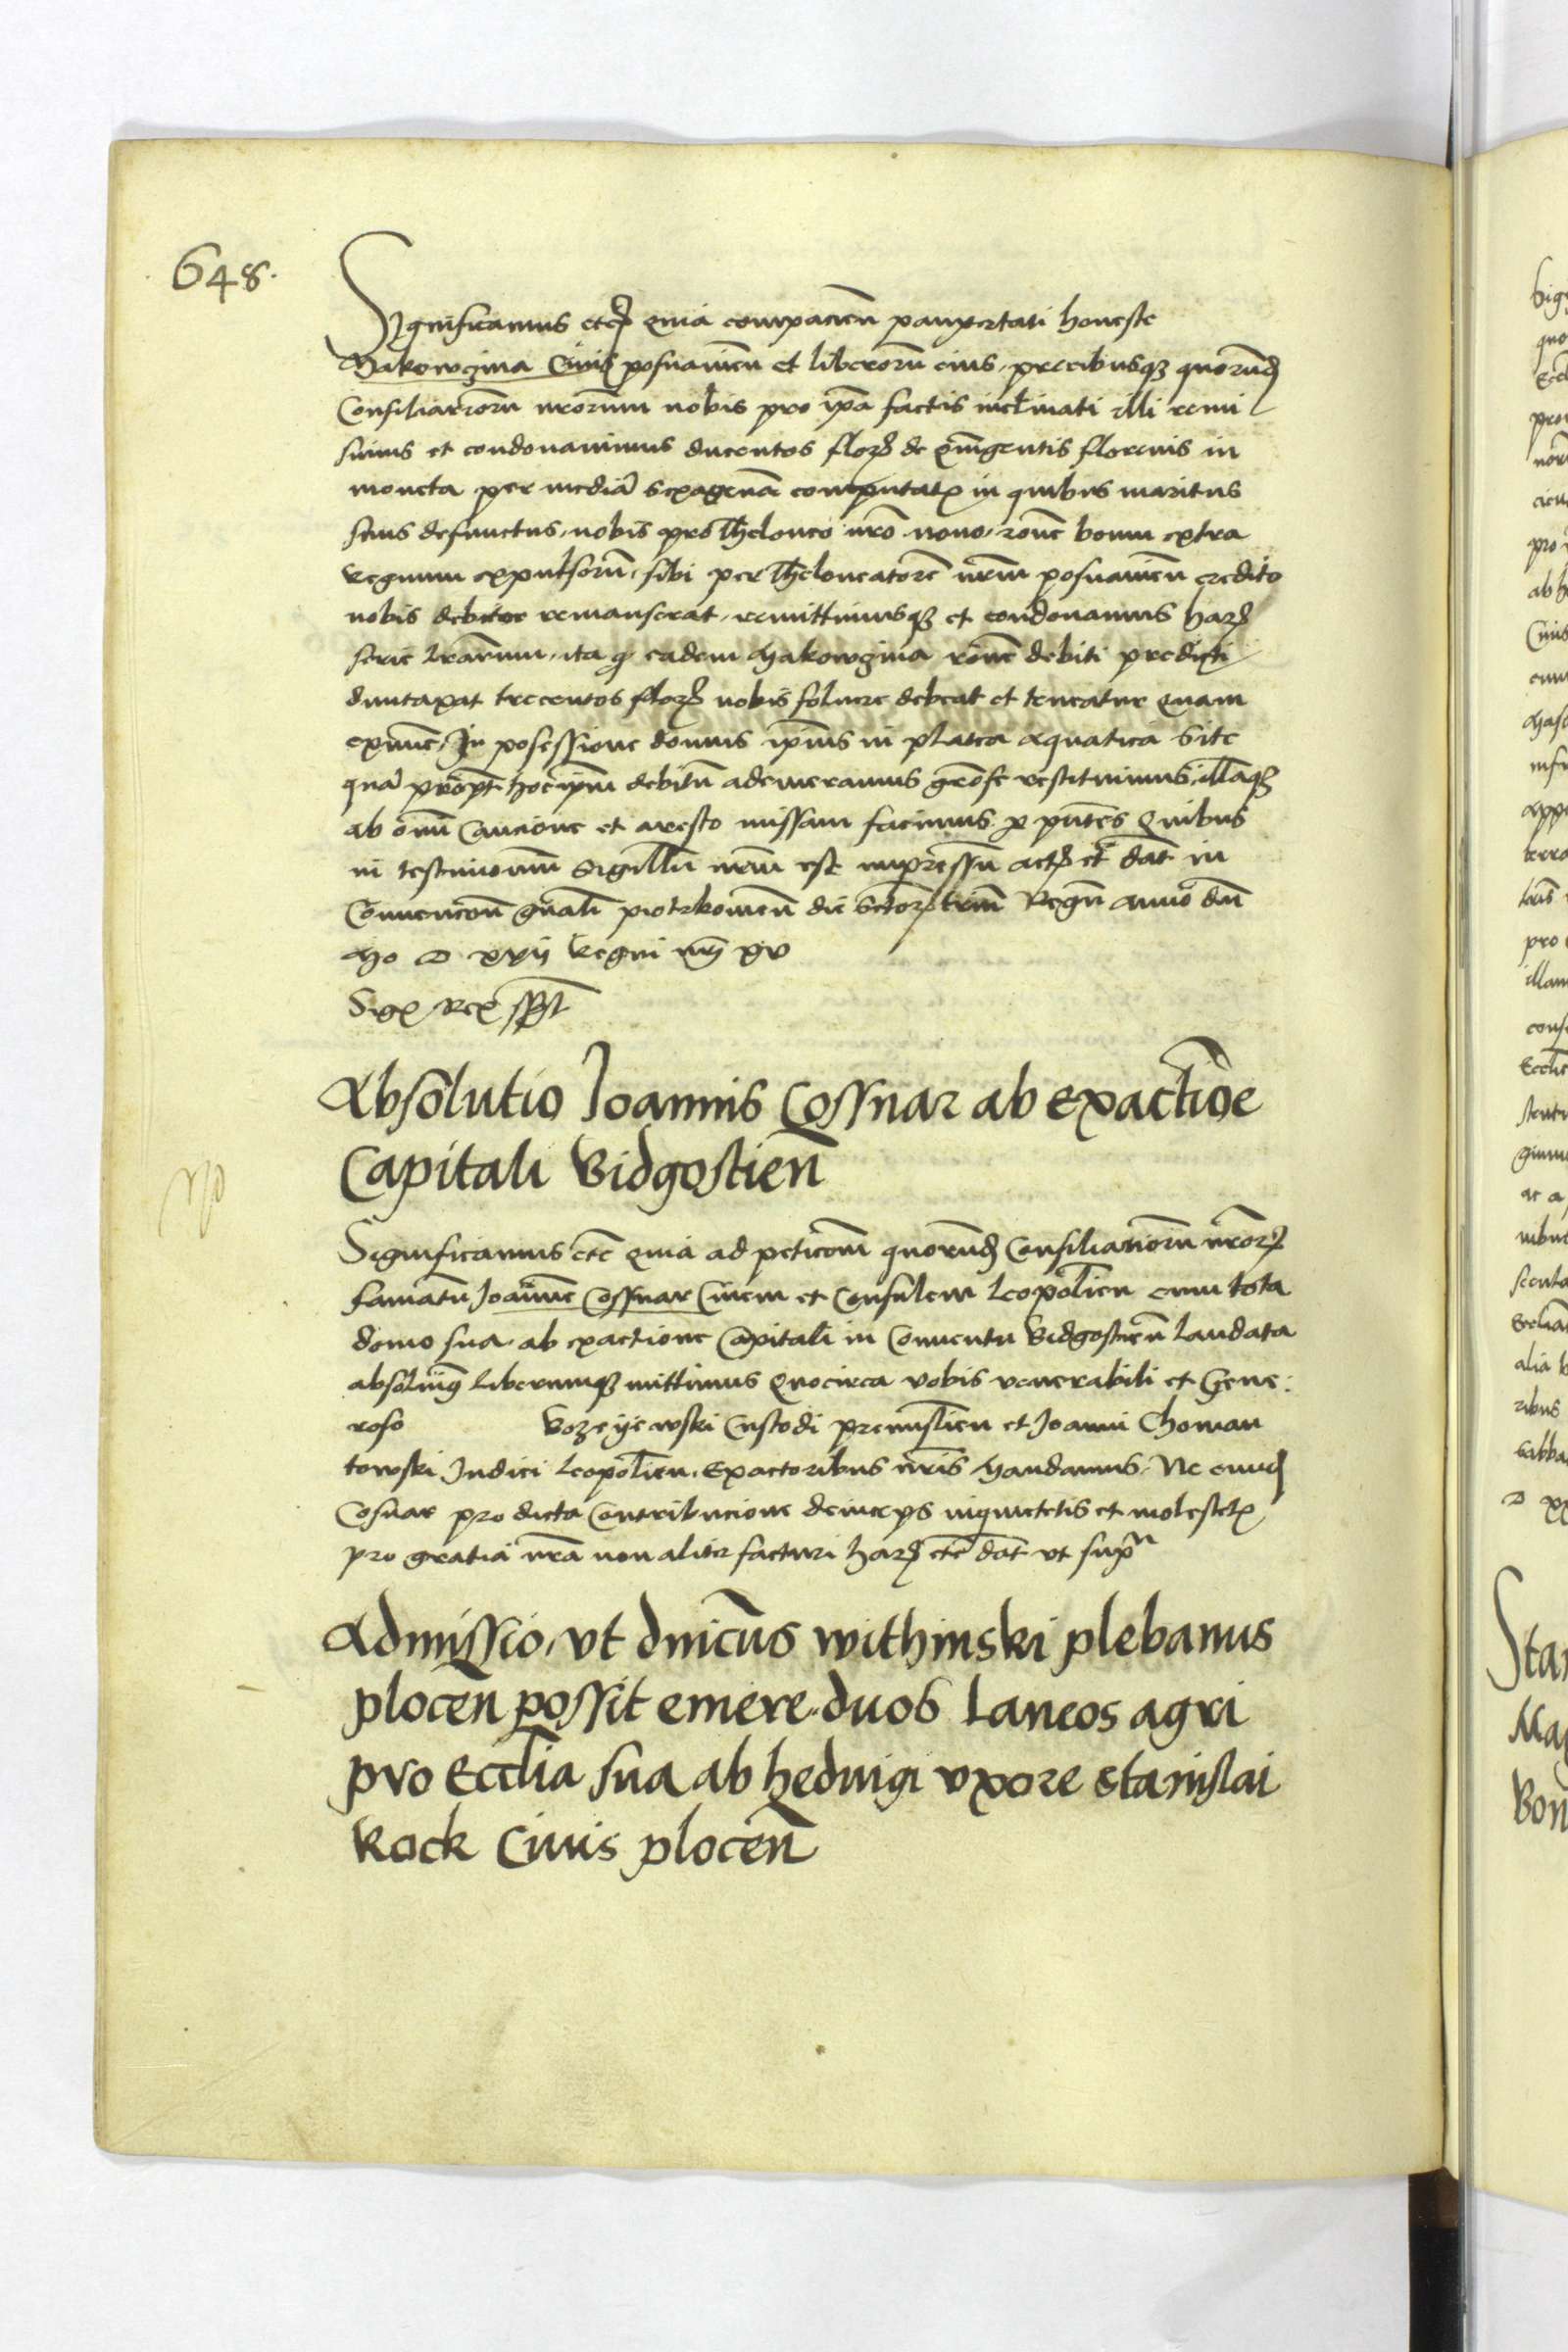 648.
Significamus etc̃ Quia compacien̄ paupertati honeste
Makowgina Civis posnanien̄ et liberorū eius, precibusqz quorund
Consiliariorū nr̄orum nobis pro ip̄a factis inclinati illi remi
simus et condonavimus ducentos flor̄ de quingentis florenis in
moneta per mediā sexagenā computatꝭ in quibus maritus
suus defunctus, nobis pro Theloneo nr̄o novo, rōne boum extra
Regnum expulsorū, sibi per Theloneatorē nr̄m posnanien̄ credito
nobis debitor remanserat, remittimusqz et condonamus harꝫ
serie lr̄arum, ita q eadem Makowgina rōne debiti predicti
duntaxat trecentos flor̄ nobis solvere debeat et teneatur Quam
exnunc, In posessione domus ip̄ius in platea aquatica site
quā propt̄ hoc ip̄m debitū ademeramus gr̄ose restituimus, illāqz
ab om̄i Caucione et aresto missam facimus p pn̄tes Quibus
in testimoniū Sigillū nr̄m est impressū actꝫ et dat̄ in
Convencōn gn̄ali piotrkovien̄ die Sctorꝫ trium Regū anno dn̄i
Mo D xxii Regni nr̄i xv
Sigꝭ Rex sp̄st
Absolutio Joannis Cossnar ab exactiōe
Capitali Bidgostien̄
Significamus etc̄ Quia ad peticōem quorund Consiliariorū nr̄orꝫ
famatū Joānne Cossnar Civem et Consulem Leopolien̄ cum tota
domo sua ab exactione Capitali in Conventu Bidgostien̄ laudata
absolvimꝰ liberumqz mittimus Quocirca vobis venerabili et Gene:
roso Bozeyewski Custodi premislien̄ et Joanni Choman
towski Judici Leopolien̄, Exactoribus nr̄is Mandamus, Ne eund
Cosnar pro dicta Contribucione deinceps inquietetis et molestetꝭ
pro gratia nr̄a non aliter facturi harꝫ etc̄ dat̄ ut supra
Admissio, ut dnicus withinski plebanus
plocen̄ possit emere duos Laneos agri
pro Eccl̄ia sua ab hedvigi uxore stanislai
Kock Civis plocen̄